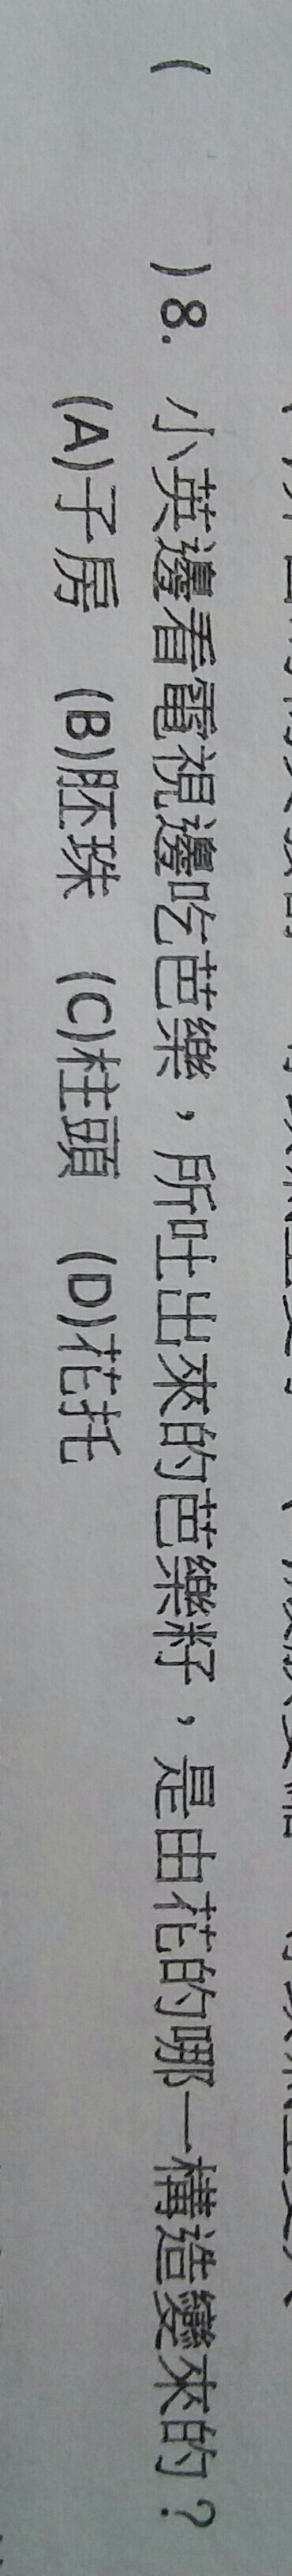 ( ) 8. 小英邊看電視邊吃芭樂，所吐出來的芭樂籽，是由花的哪一構造變來的？
(A)子房 (B)胚珠 (C)柱頭 (D)花托